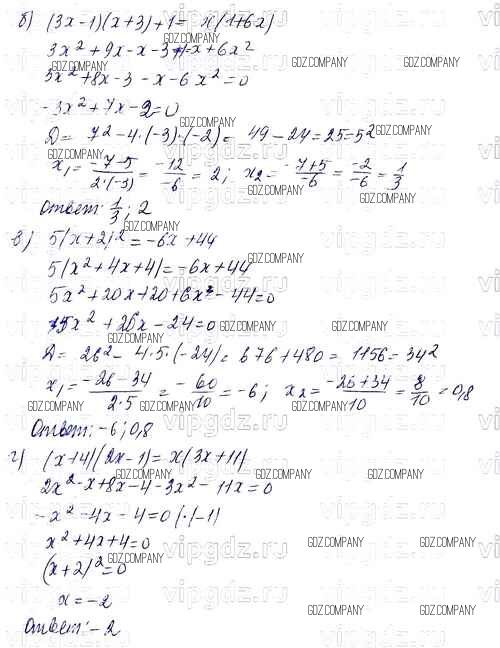 б) (3x-1)(x+3)+1= x(1+6x)
3x²+9x-x-3+1=x+6x²
3x²+8x-3-x-6x²=0
-3x²+7x-2=0
D= 7²-4·(-3)·(-2)= 49-24=25=5²
x₁= (-7-5)/(2·(-3)) = (-12)/(-6) = 2; x₂= (-7+5)/(-6) = (-2)/(-6) = 1/3
Ответ: 1/3; 2
в) 5(x+2)²=-6x+44
5(x²+4x+4)=-6x+44
5x²+20x+20+6x-44=0
5x²+26x-24=0
D= 26²-4·5·(-24)= 676+480= 1156=34²
x₁= (-26-34)/(2·5) = -60/10 = -6; x₂= (-26+34)/10 = 8/10 = 0,8
Ответ: -6; 0,8
г) (x+4)(2x-1)=x(3x+11)
2x²-x+8x-4-3x²-11x=0
-x²-4x-4=0 |·(-1)
x²+4x+4=0
(x+2)²=0
x=-2
Ответ: -2
vipgdz.ru
GDZ.COMPANY